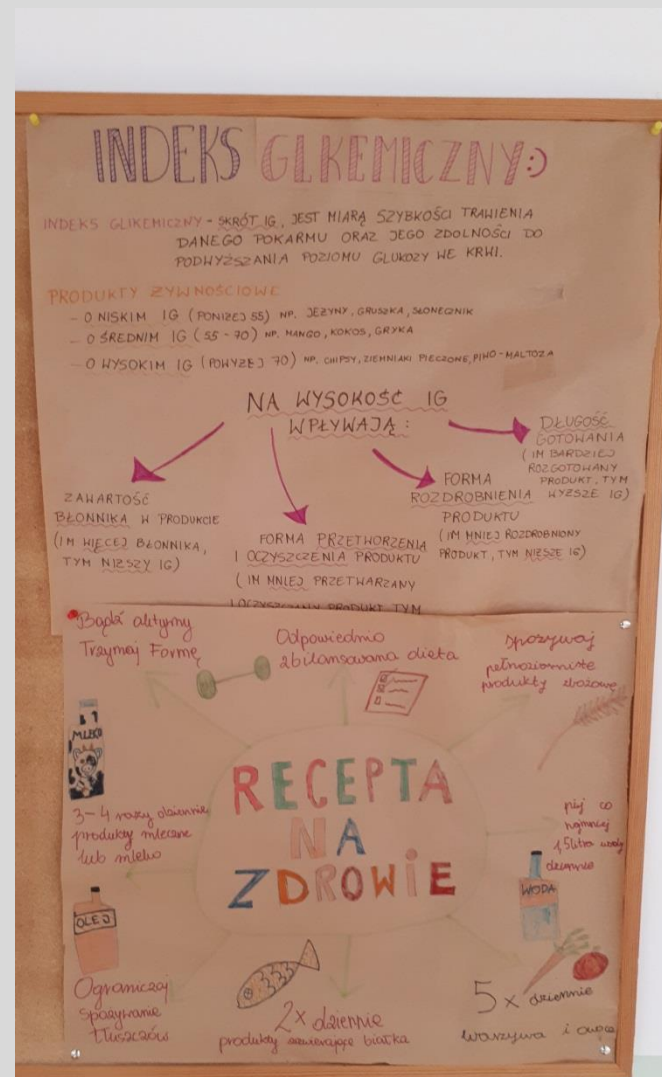 INDEKS GLKEMICZNY:)
INDEKS GLIKEMICZNY - SKRÓT IG, JEST MIARĄ SZYBKOŚCI TRAWIENIA
DANEGO POKARMU ORAZ JEGO ZDOLNOŚCI DO
PODWYŻSZANIA POZIOMU GLUKOZY WE KRWI.
PRODUKTY ŻYWNOŚCIOWE
- O NISKIM IG (PONIŻEJ 55) NP. JEŻYNY, GRUSZKA, SŁONECZNIK
- O ŚREDNIM IG (55-70) NP. MANGO, KOKOS, GRYKA
- O WYSOKIM IG (POWYŻEJ 70) NP. CHIPSY, ZIEMNIAKI PIECZONE, PIWO-MALTOZA
NA WYSOKOŚĆ IG
WPŁYWAJĄ:
ZAWARTOŚĆ
BŁONNIKA W PRODUKCIE
(IM WIĘCEJ BŁONNIKA,
TYM NIŻSZY IG)
FORMA PRZETWORZENIA
I OCZYSZCZENIA PRODUKTU
(IM MNIEJ PRZETWARZANY
I OCZYSZCZANY PRODUKT TYM
FORMA
ROZDROBNIENIA
PRODUKTU
(IM MNIEJ ROZDROBNIONY
PRODUKT, TYM NIŻSZE IG)
DŁUGOŚĆ
GOTOWANIA
(IM BARDZIEJ
ROZGOTOWANY
PRODUKT, TYM
WYŻSZE IG)
Bądź aktywny
Trzymaj Formę
Odpowiednio
zbilansowana dieta
spożywaj
pełnoziarniste
produkty zbożowe
MLEKO
3-4 razy dziennie
produkty mleczne
lub mleko
RECEPTA
NA
ZDROWIE
pij co
najmniej
1,5litra wody
dziennie
WODA
OLEJ
Ograniczaj
spożywanie
tłuszczów
2x dziennie
produkty zawierające białka
5x dziennie
warzywa i owoce